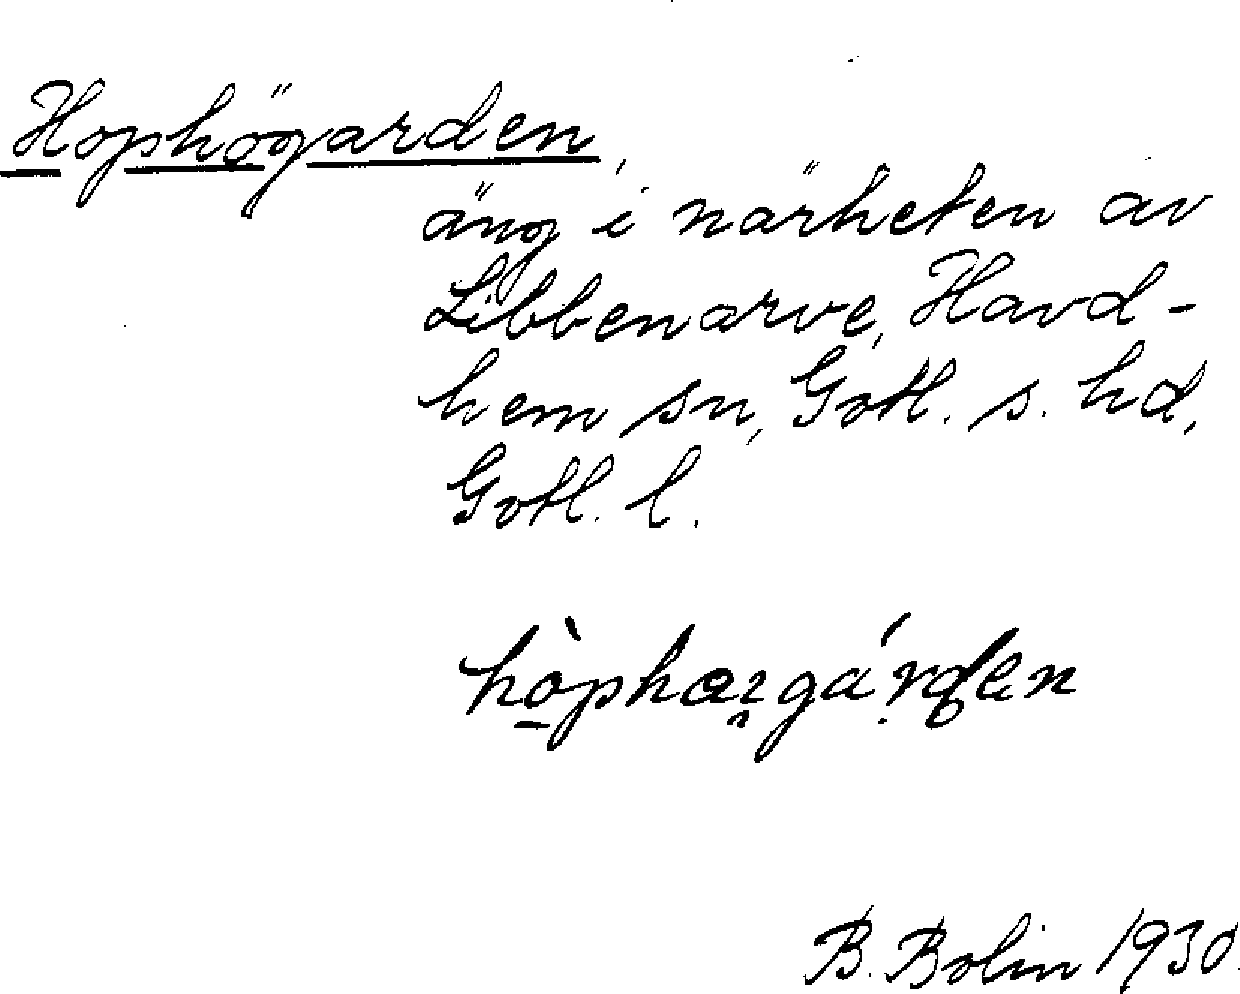 Hophögarden,
äng i närheten av
Libbenarve, Havd-
hem sn, Gotl. s. hd,
Gotl. l.
B. Bolin 1930.